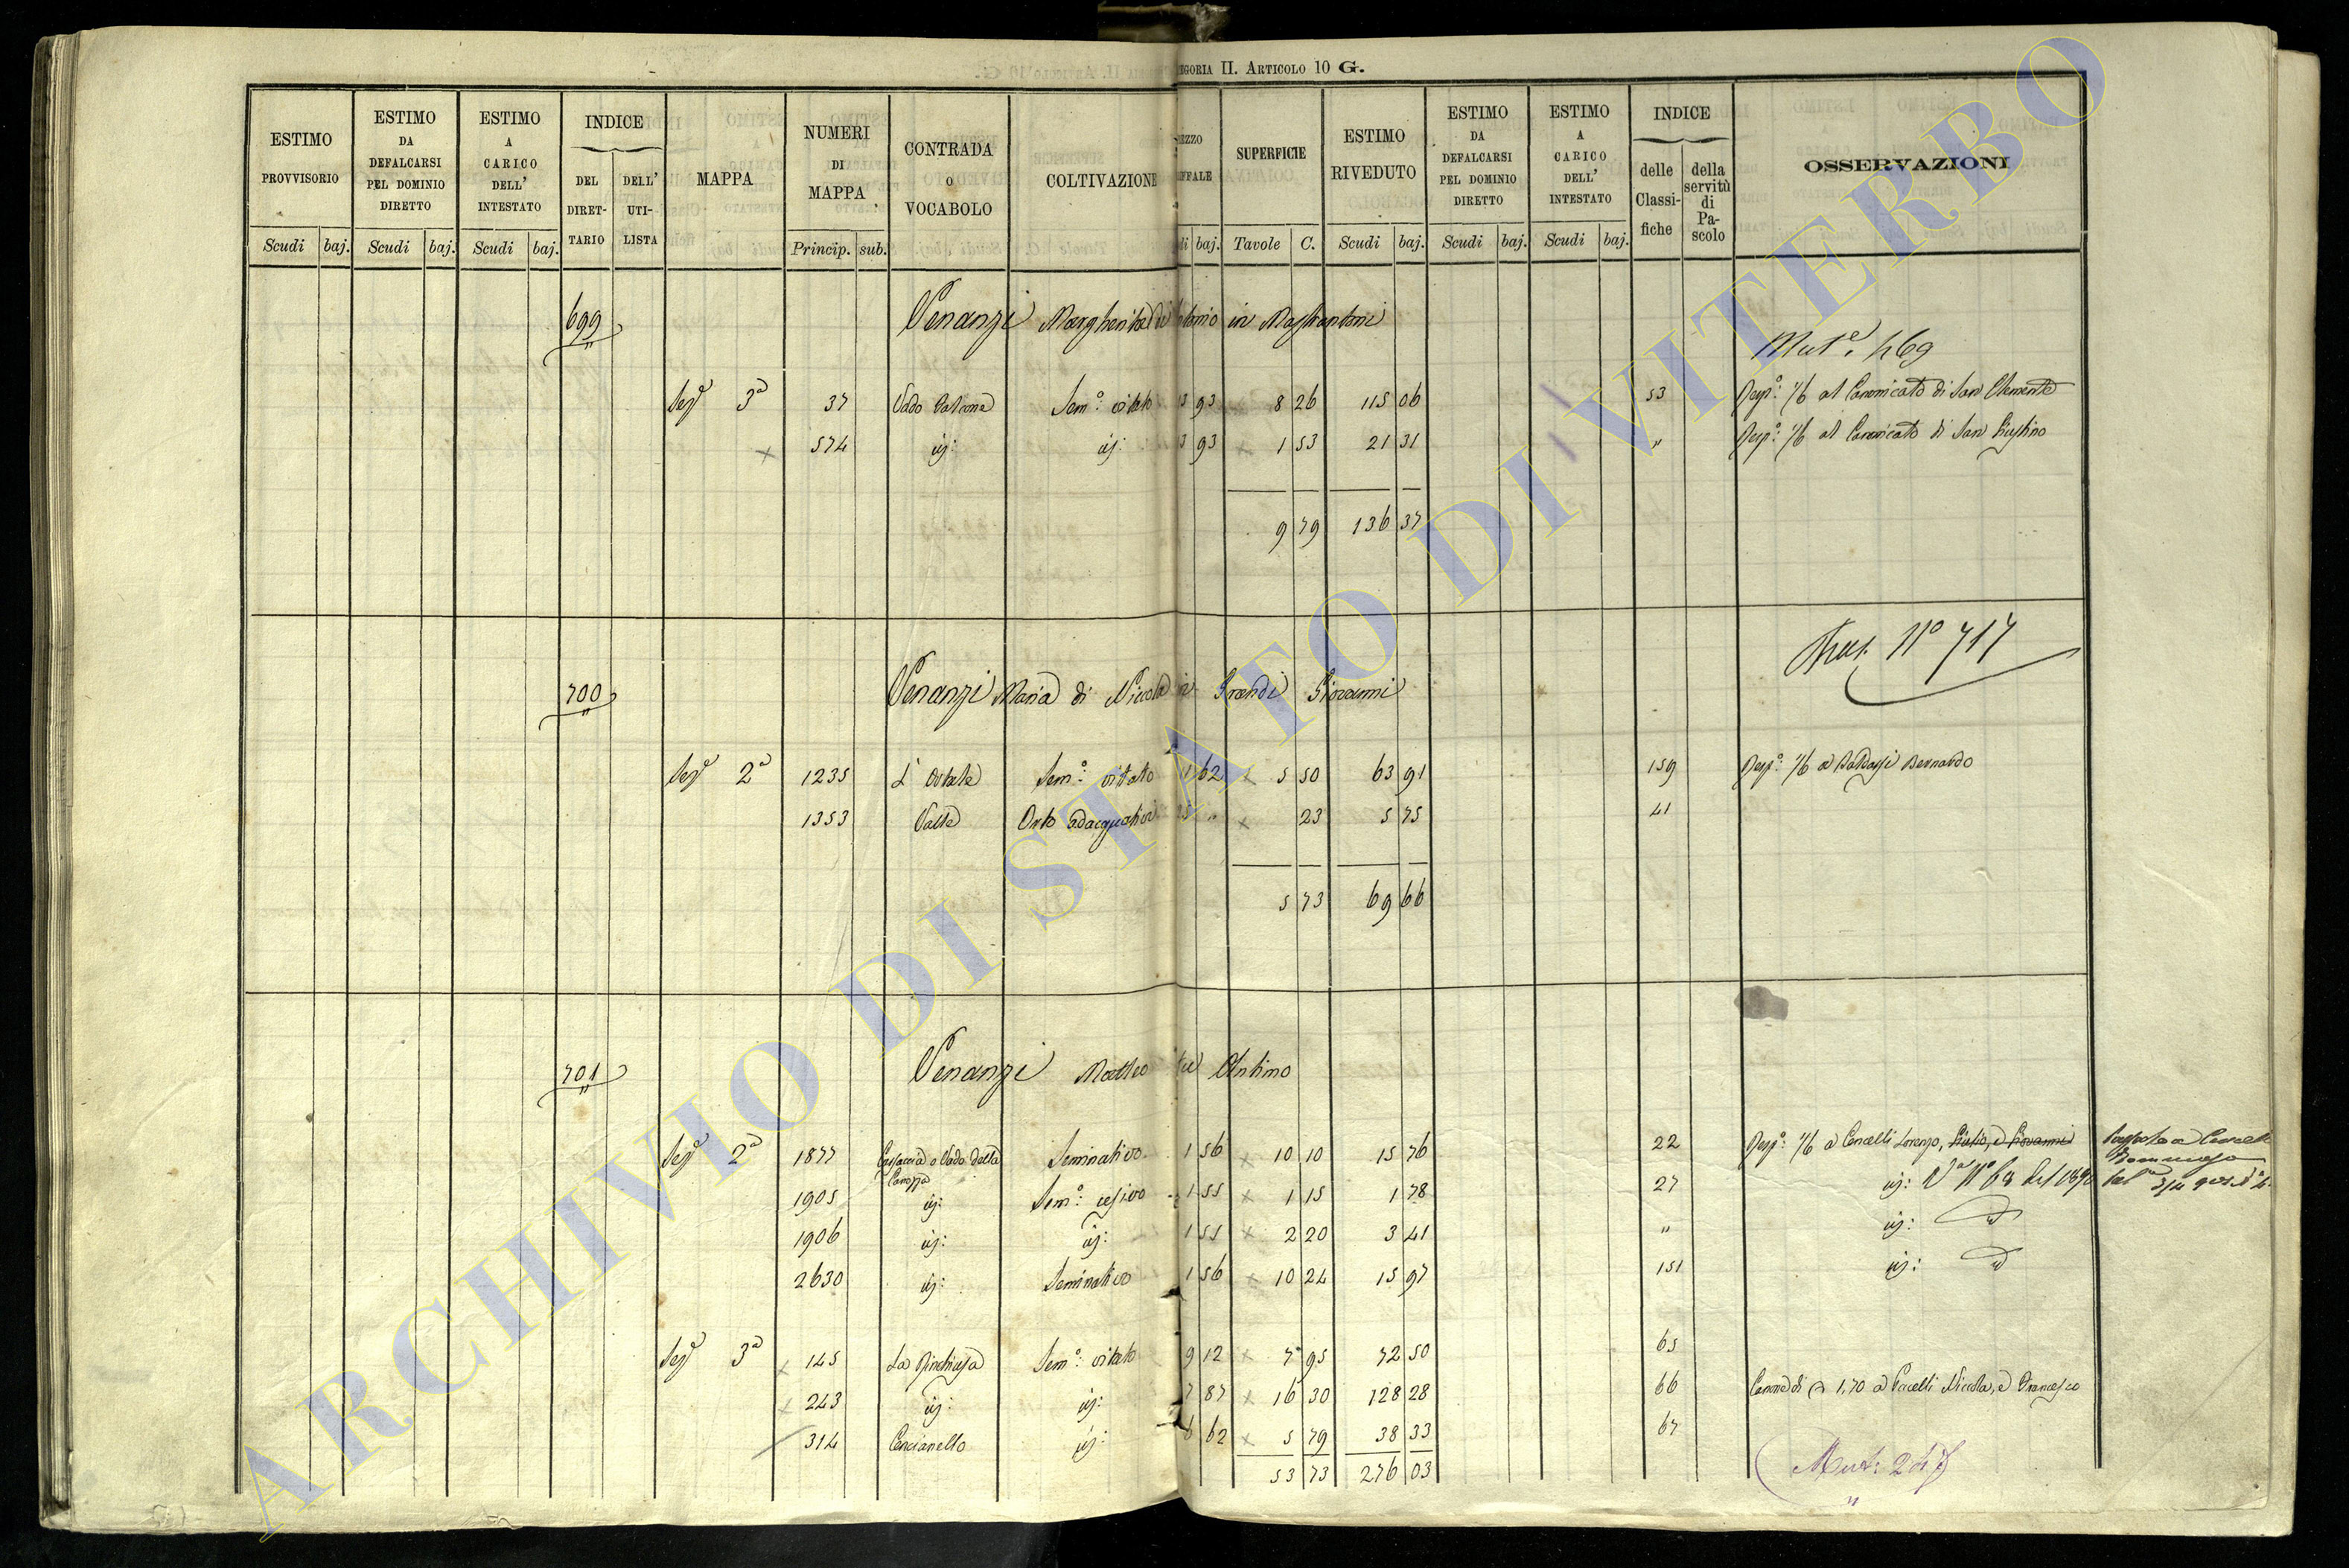 EGORIA II. ARTICOLO 10 G.
ESTIMO PROVVISORIO
ESTIMO DA DEFALCARSI PEL DOMINIO DIRETTO
ESTIMO A CARICO DELL' INTESTATO
INDICE
DEL DIRET-TARIO
DELL' UTI-LISTA
MAPPA
NUMERI DI MAPPA
CONTRADA O VOCABOLO
COLTIVAZIONE
SUPERFICIE
ESTIMO RIVEDUTO
ESTIMO DA DEFALCARSI PEL DOMINIO DIRETTO
ESTIMO A CARICO DELL' INTESTATO
INDICE
delle Classi-fiche
della servitù di Pa-scolo
OSSERVAZIONI
Scudi baj. Scudi baj. Scudi baj. Princip. sub. baj. Tavole C. Scudi baj. Scudi baj. Scudi baj.
699 Venanzi Margherita di in Mastrantoni
Mut.e 469
Sez.e 3a 37 Vado Semo: vitato 93 8 26 115 06 53 Risp.a: 1/6 al Canonicato di San Clemente
x 574 id: id: 93 x 1 53 21 31 " Risp.a: 1/6 al Canonicato di San
9 79 136 37
No 717
700 Venanzi Maria di Nicola in Grandi Giovanni
Sez.e 2a 1235 L' Semo: vitato 1 62 x 5 50 63 91 159 Risp.a: 1/6 a Bernardo
1353 Valle Orto adacquativo " x 23 5 75 41
5 73 69 66
701 Venanzi Matteo Antimo
Sez.e 2a 1877 o Vado della Seminativo 1 56 x 10 10 15 76 22 Risp.a: 1/6 a Cencelli Lorenzo, Giulio, e Giovanni
1905 id: Semo: cesivo 1 55 x 1 15 1 78 27 id:
1906 id: id: 1 55 x 2 20 3 41 " id:
2630 id: Seminativo 1 56 x 10 24 15 97 151 id:
Sez.e 3a x 145 La Semo: vitato 9 12 x 7 95 72 50 65
x 243 id: id: 7 87 x 16 30 128 28 66 Canone di 1,70 a Pacelli Niccola, e Francesco
314 Cencianello id: 6 62 x 5 79 38 33 67
53 73 276 03
Mut: 247
ARCHIVIO DI STATO DI VITERBO